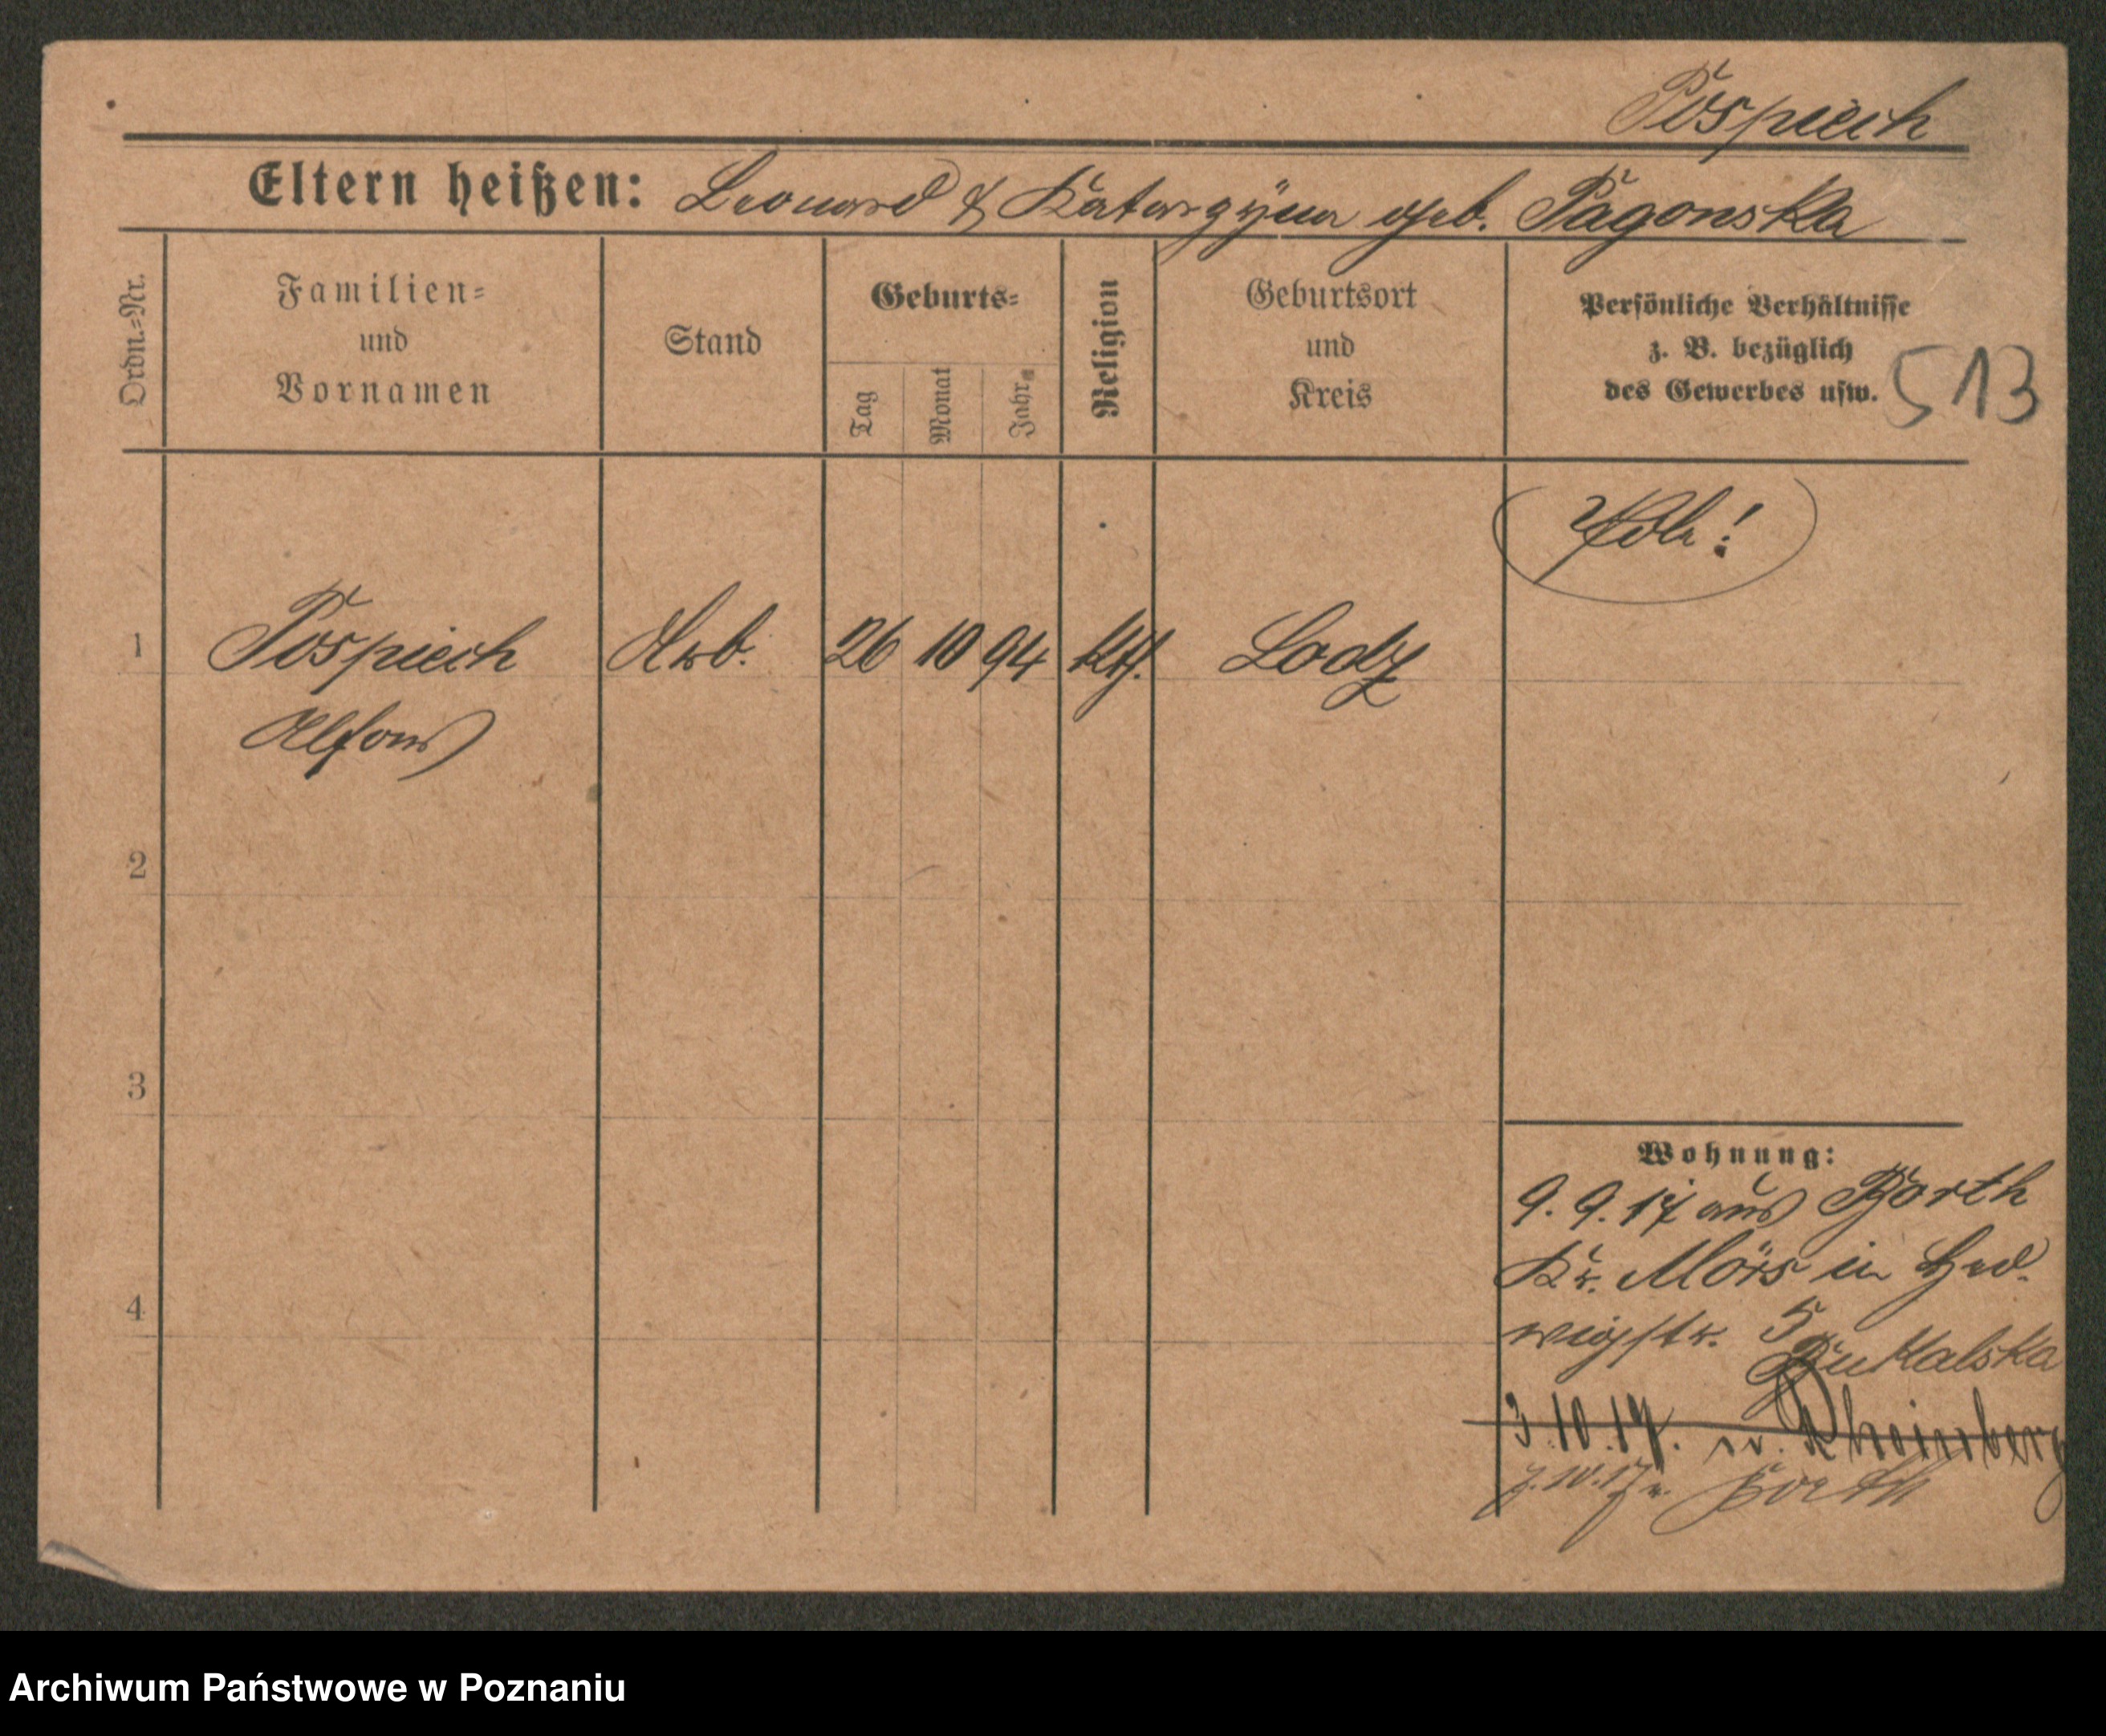 Pospiech
Eltern heißen: Leonard & Katarzÿna geb. Pagonska
Ordn.=Nr.
Familien=
und
Vornamen
Stand
Geburts=
Tag
Monat
Jahr
Religion
Geburtsort
und
Kreis
Persönliche Verhältnisse
z. B. bezüglich
des Gewerbes usw.
513
Pole!
1 Pospiech Arb. 26 10 94 kth. Lodz
Alfons
2
3
4
Wohnung:
9. 9. 17 aus Borth
Kr. Mörs in Hed-
wigstr. 5
Bukalska
3.10.17. n. Rheinberg
7.10.17 n. Borth
Archiwum Państwowe w Poznaniu